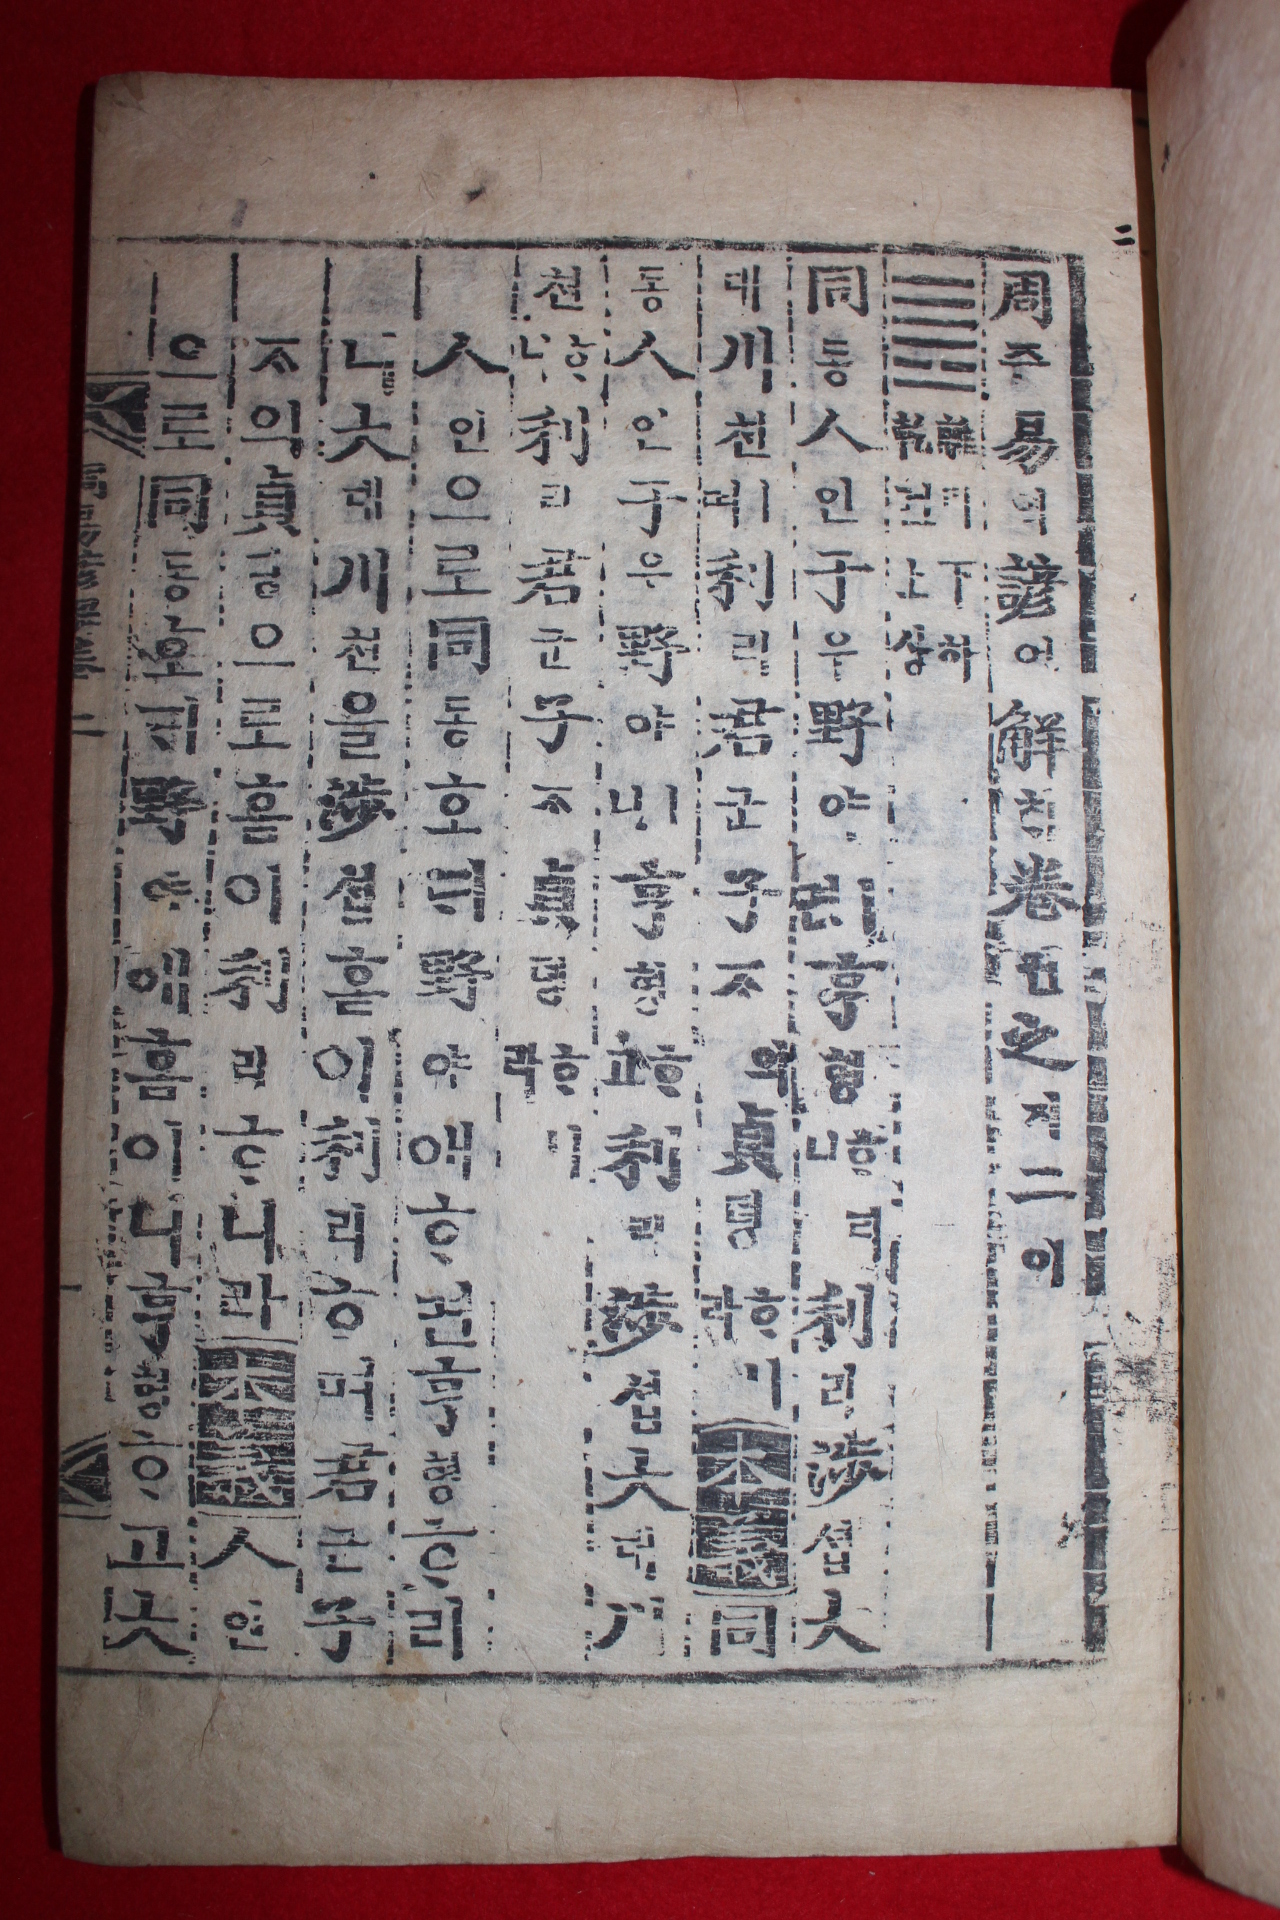 周쥬易역諺언解ᄒᆡ卷五之지二이
離리下하
乾건上상
同동人인于우野야ㅣ면亨형ᄒᆞ리니利리涉섭大
대川쳔이며利리君군子ᄌᆞ의貞뎡ᄒᆞ니라本義同
동人인于우野야ㅣ니亨형ᄒᆞ고利리涉섭大대川
쳔ᄒᆞ나利리君군子ᄌᆞ貞뎡ᄒᆞ니라
人인으로同동호ᄃᆡ野야애ᄒᆞ면亨형ᄒᆞ리
니大대川쳔을涉섭홈이利리ᄒᆞ며君군子
ᄌᆞ의貞뎡으로홈이利리ᄒᆞ니라本義人인
으로同동호ᄃᆡ野야애홈이니亨형ᄒᆞ고大